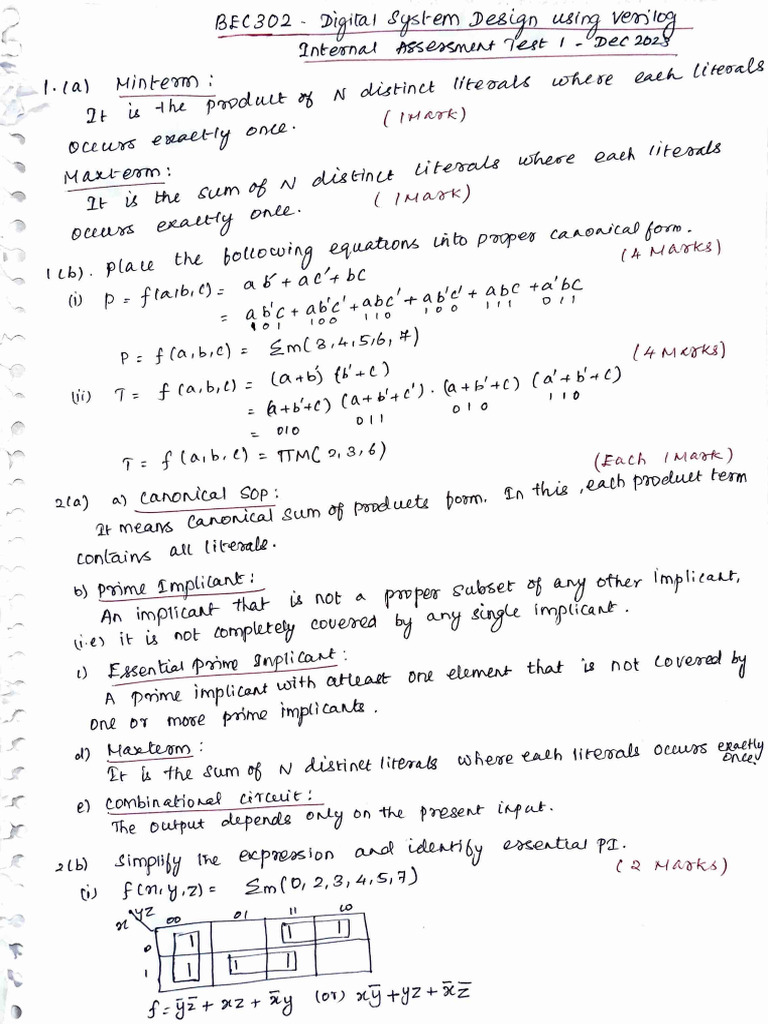 BEC302 - Digital System Design using Verilog
Internal Assessment Test 1 - Dec 2023
1.(a) Minterm:
It is the product of N distinct literals where each literals
occurs exactly once. (1Mark)
Maxterm:
It is the sum of N distinct literals where each literals
occurs exactly once. (1Mark)
1(b). Place the following equations into proper canonical form.
(4 Marks)
(i) P = f(a,b,c) = ab' + ac' + bc
= ab'c + ab'c' + abc' + ab'c' + abc + a'bc
101 100 110 100 111 011
P = f(a,b,c) = Σm(3,4,5,6,7)
(ii) T = f(a,b,c) = (a+b') (b'+c) (4 Marks)
= (a+b'+c) (a+b'+c') . (a+b'+c) (a'+b'+c)
= 010 011 010 110
T = f(a,b,c) = ΠM(2,3,6)
(Each 1Mark)
2(a) a) Canonical SOP:
It means canonical sum of products form. In this, each product term
contains all literals.
b) Prime Implicant:
An implicant that is not a proper subset of any other implicant,
(i.e) it is not completely covered by any single implicant.
c) Essential Prime Implicant:
A prime implicant with atleast one element that is not covered by
one or more prime implicants.
d) Maxterm:
It is the sum of N distinct literals where each literals occurs exactly
once.
e) Combinational circuit:
The output depends only on the present input.
2(b) Simplify the expression and identify essential PI.
(i) f(x,y,z) = Σm(0,2,3,4,5,7) (2 Marks)
x yz 00 01 11 10
0 1 1 1
1 1 1 1
f = y̅z̅ + xz + x̅y (or) xy̅ + yz + x̅z̅